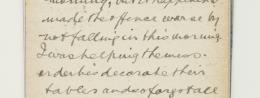 morning, but it happened
made the offence worse by
not falling in this morning.
I was helping the mess
orderlies decorate their
tables and so forgot all